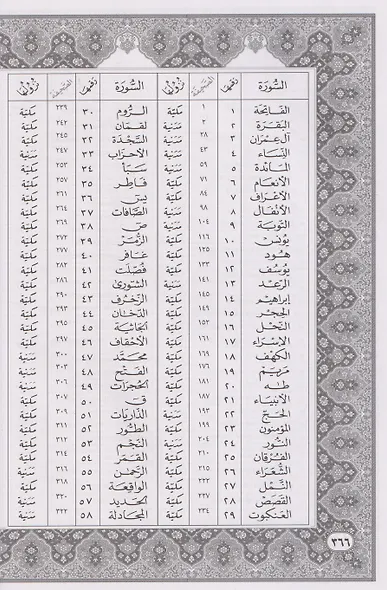 السُّورَة رقمها الصحيفة نزولها السُّورَة رقمها الصحيفة نزولها
الفَاتِحَة ١ ١ مكيّة الرُّوم ٣٠ ٢٣٩ مكيّة
البَقَرَة ٢ ٢ مدنية لقمَان ٣١ ٢٤٢ مكيّة
آل عِمرَان ٣ ٢٨ مدنية السَّجْدَة ٣٢ ٢٤٥ مكيّة
النِّسَاء ٤ ٤٣ مدنية الأحزَاب ٣٣ ٢٤٧ مدنية
المَائدة ٥ ٥٩ مدنية سَبَأ ٣٤ ٢٥٣ مكيّة
الأنعَام ٦ ٧١ مكيّة فَاطِر ٣٥ ٢٥٧ مكيّة
الأعْرَاف ٧ ٨٤ مكيّة يسٓ ٣٦ ٢٦١ مكيّة
الأنفَال ٨ ٩٨ مدنية الصَّافات ٣٧ ٢٦٤ مكيّة
التوبَة ٩ ١٠٤ مدنية صٓ ٣٨ ٢٦٩ مكيّة
يُونس ١٠ ١١٦ مكيّة الزُّمَر ٣٩ ٢٧٢ مكيّة
هُود ١١ ١٢٥ مكيّة غَافر ٤٠ ٢٧٧ مكيّة
يُوسُف ١٢ ١٣٣ مكيّة فُصِّلَت ٤١ ٢٨٢ مكيّة
الرّعد ١٣ ١٤١ مدنية الشّورىٰ ٤٢ ٢٨٦ مكيّة
إبراهيم ١٤ ١٤٥ مكيّة الزخرُف ٤٣ ٢٩٠ مكيّة
الحِجْر ١٥ ١٤٩ مكيّة الدّخَان ٤٤ ٢٩٣ مكيّة
النّحْل ١٦ ١٥٢ مكيّة الجَاثية ٤٥ ٢٩٥ مكيّة
الإسْرَاء ١٧ ١٦١ مكيّة الأحقَاف ٤٦ ٢٩٧ مكيّة
الكهْف ١٨ ١٦٩ مكيّة محمَّد ٤٧ ٣٠٠ مدنية
مَريَم ١٩ ١٧٦ مكيّة الفَتْح ٤٨ ٣٠٣ مدنية
طٰه ٢٠ ١٨١ مكيّة الحُجرَات ٤٩ ٣٠٦ مدنية
الأنبيَاء ٢١ ١٨٧ مكيّة قٓ ٥٠ ٣٠٧ مكيّة
الحَجّ ٢٢ ١٩٣ مدنية الذاريَات ٥١ ٣٠٩ مكيّة
المؤمنون ٢٣ ١٩٩ مكيّة الطُّور ٥٢ ٣١١ مكيّة
النُّور ٢٤ ٢٠٤ مدنية النّجْم ٥٣ ٣١٢ مكيّة
الفُرقَان ٢٥ ٢١٠ مكيّة القَمَر ٥٤ ٣١٤ مكيّة
الشُّعَرَاء ٢٦ ٢١٥ مكيّة الرَّحمٰن ٥٥ ٣١٦ مدنية
النَّمْل ٢٧ ٢٢٢ مكيّة الواقِعَة ٥٦ ٣١٨ مكيّة
القصَص ٢٨ ٢٢٧ مكيّة الحَديد ٥٧ ٣٢٠ مدنية
العَنكبوت ٢٩ ٢٣٤ مكيّة المجَادلة ٥٨ ٣٢٢ مدنية
٣٦٦